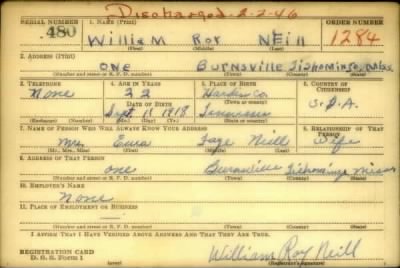 Discharged - 2-2-46
SERIAL NUMBER 1. NAME (Print) ORDER NUMBER
480 William Roy NEill 1284
(First) (Middle) (Last)
2. ADDRESS (Print)
ONE Burnsville Tishomingo, Miss.
(Number and street or R. F. D. number) (Town) (County) (State)
3. TELEPHONE 4. AGE IN YEARS 5. PLACE OF BIRTH 6. COUNTRY OF CITIZENSHIP
None 22 Hardin Co.
DATE OF BIRTH
Sept. 11 1918 Tennessee
(Exchange) (Number) (Mo.) (Day) (Yr.) (State or country)
7. NAME OF PERSON WHO WILL ALWAYS KNOW YOUR ADDRESS 8. RELATIONSHIP OF THAT PERSON
Mrs. Faye Neill Wife
(Mr., Mrs., Miss) (First) (Middle) (Last)
9. ADDRESS OF THAT PERSON
one Burnsville Tishomingo Miss
(Number and street or R. F. D. number) (Town) (County) (State)
10. EMPLOYER'S NAME
None
11. PLACE OF EMPLOYMENT OR BUSINESS
(Number and street or R. F. D. number) (Town) (County) (State)
I AFFIRM THAT I HAVE VERIFIED ABOVE ANSWERS AND THAT THEY ARE TRUE.
REGISTRATION CARD
D. S. S. Form 1
William Roy Neill
(Registrant's signature)